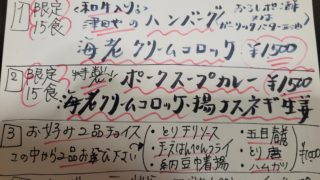 1 限定15食 <和牛入り> 津田やのハンバーグ
海老クリームコロッケ ¥1500
2 限定15食 特製 ポークスープカレー ¥1500
海老クリームコロッケ・揚ナスネギ生姜
3 お好み2品チョイス
この中から2品お選び下さい
・とり
・チーズはんぺんフライ
・納豆巾着揚
・五目春巻
・とり唐
・ハムカツ
¥1000